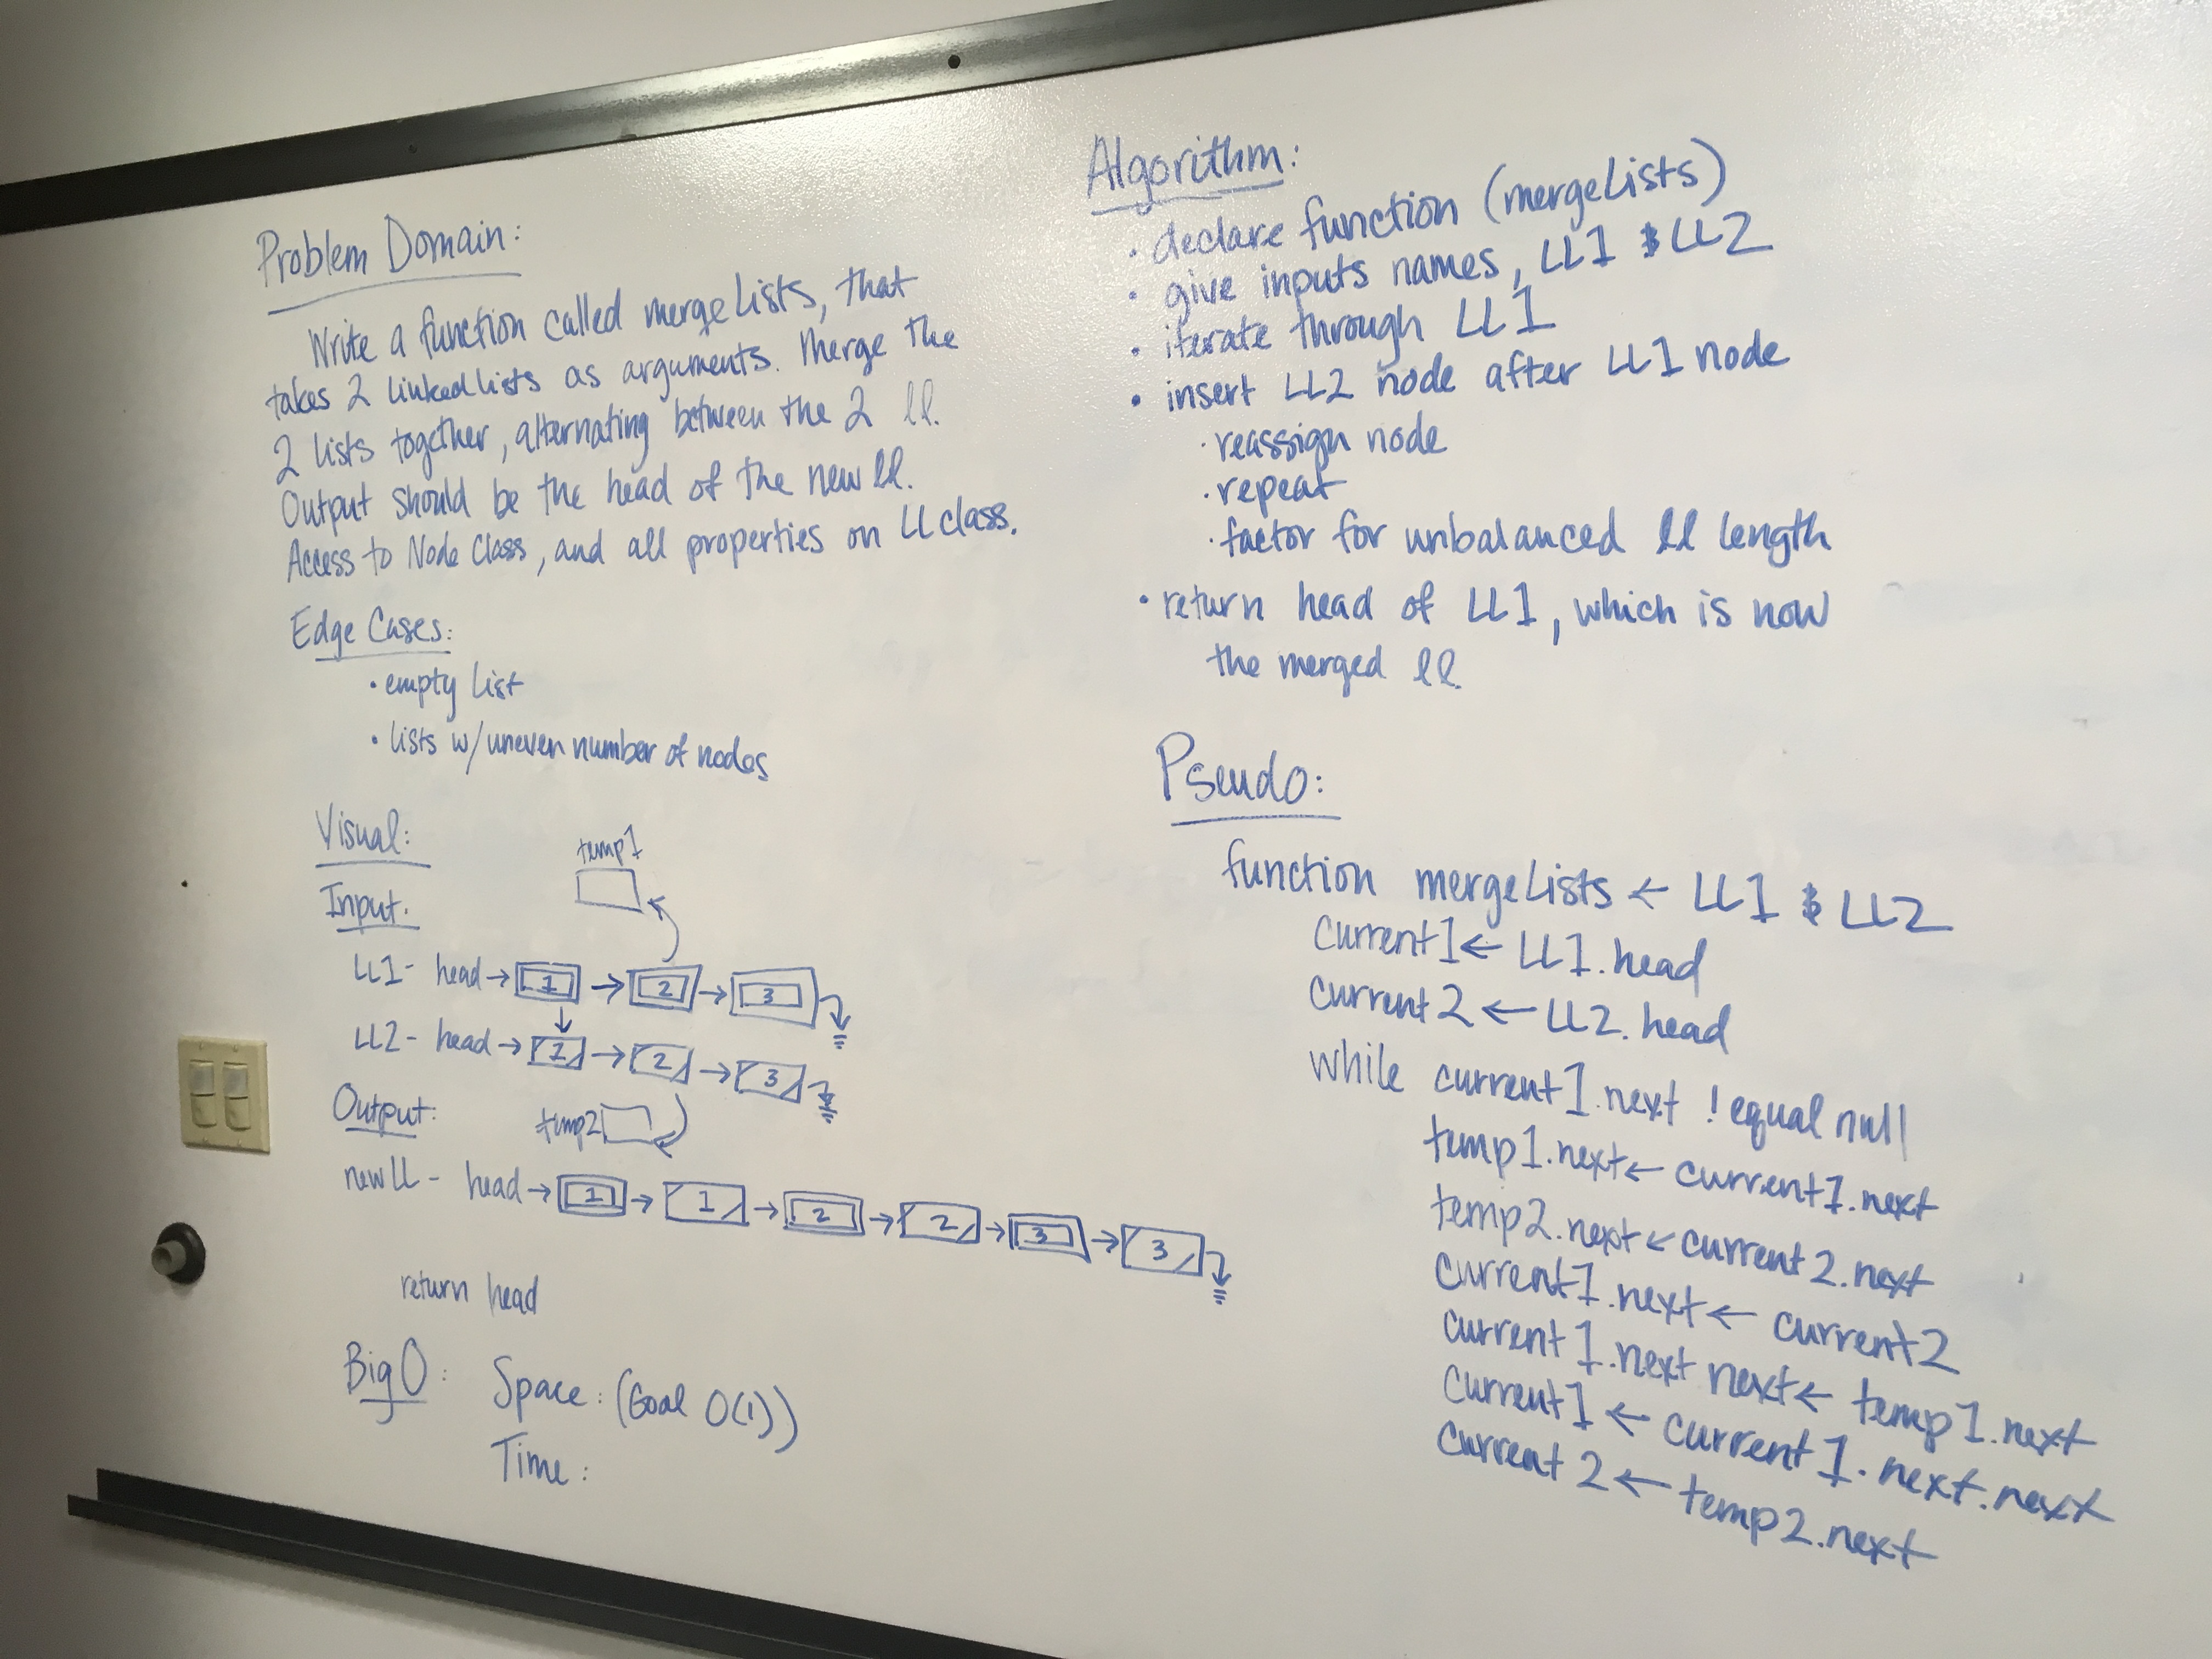 Problem Domain:
Write a function called mergeLists, that
takes 2 linked lists as arguments. Merge the
2 lists together, alternating between the 2 ll.
Output should be the head of the new ll.
Access to Node Class, and all properties on LL class.
Edge Cases:
• empty list
• lists w/ uneven number of nodes
Visual:
temp1
Input:
LL1- head → 1 → 2 → 3
LL2- head → 1 → 2 → 3
Output:
temp2
new LL - head → 1 → 1 → 2 → 2 → 3 → 3
return head
Big O:
Space: (Goal O(1))
Time:
Algorithm:
• declare function (mergeLists)
• give inputs names, LL1 & LL2
• iterate through LL1
• insert LL2 node after LL1 node
• reassign node
• repeat
• factor for unbalanced ll length
• return head of LL1, which is now
the merged ll
Pseudo:
function mergeLists ← LL1 & LL2
Current1 ← LL1.head
Current2 ← LL2.head
while current1.next !equal null
temp1.next ← current1.next
temp2.next ← current2.next
Current1.next ← current2
Current1.next next ← temp1.next
Current1 ← current1.next.next
Current2 ← temp2.next